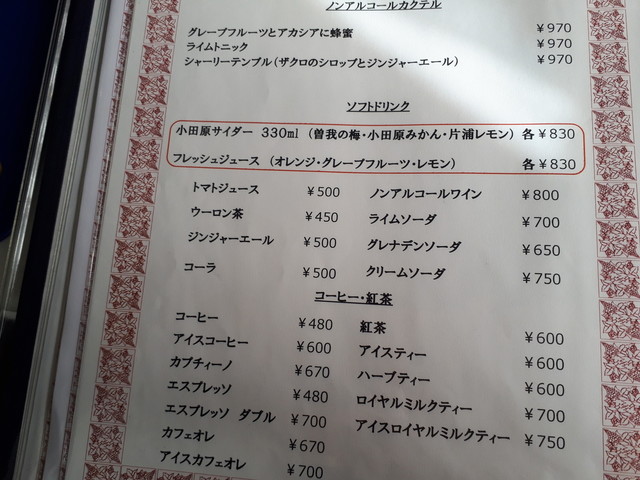 ノンアルコールカクテル
グレープフルーツとアカシアに蜂蜜 ¥970
ライムトニック ¥970
シャーリーテンプル（ザクロのシロップとジンジャーエール） ¥970
ソフトドリンク
小田原サイダー 330ml （曽我の梅・小田原みかん・片浦レモン） 各 ¥830
フレッシュジュース （オレンジ・グレープフルーツ・レモン） 各 ¥830
トマトジュース ¥500 ノンアルコールワイン ¥800
ウーロン茶 ¥450 ライムソーダ ¥700
ジンジャーエール ¥500 グレナデンソーダ ¥650
コーラ ¥500 クリームソーダ ¥750
コーヒー・紅茶
コーヒー ¥480 紅茶 ¥600
アイスコーヒー ¥600 アイスティー ¥600
カプチィーノ ¥670 ハーブティー ¥600
エスプレッソ ¥480 ロイヤルミルクティー ¥700
エスプレッソ ダブル ¥700 アイスロイヤルミルクティー ¥750
カフェオレ ¥670
アイスカフェオレ ¥700